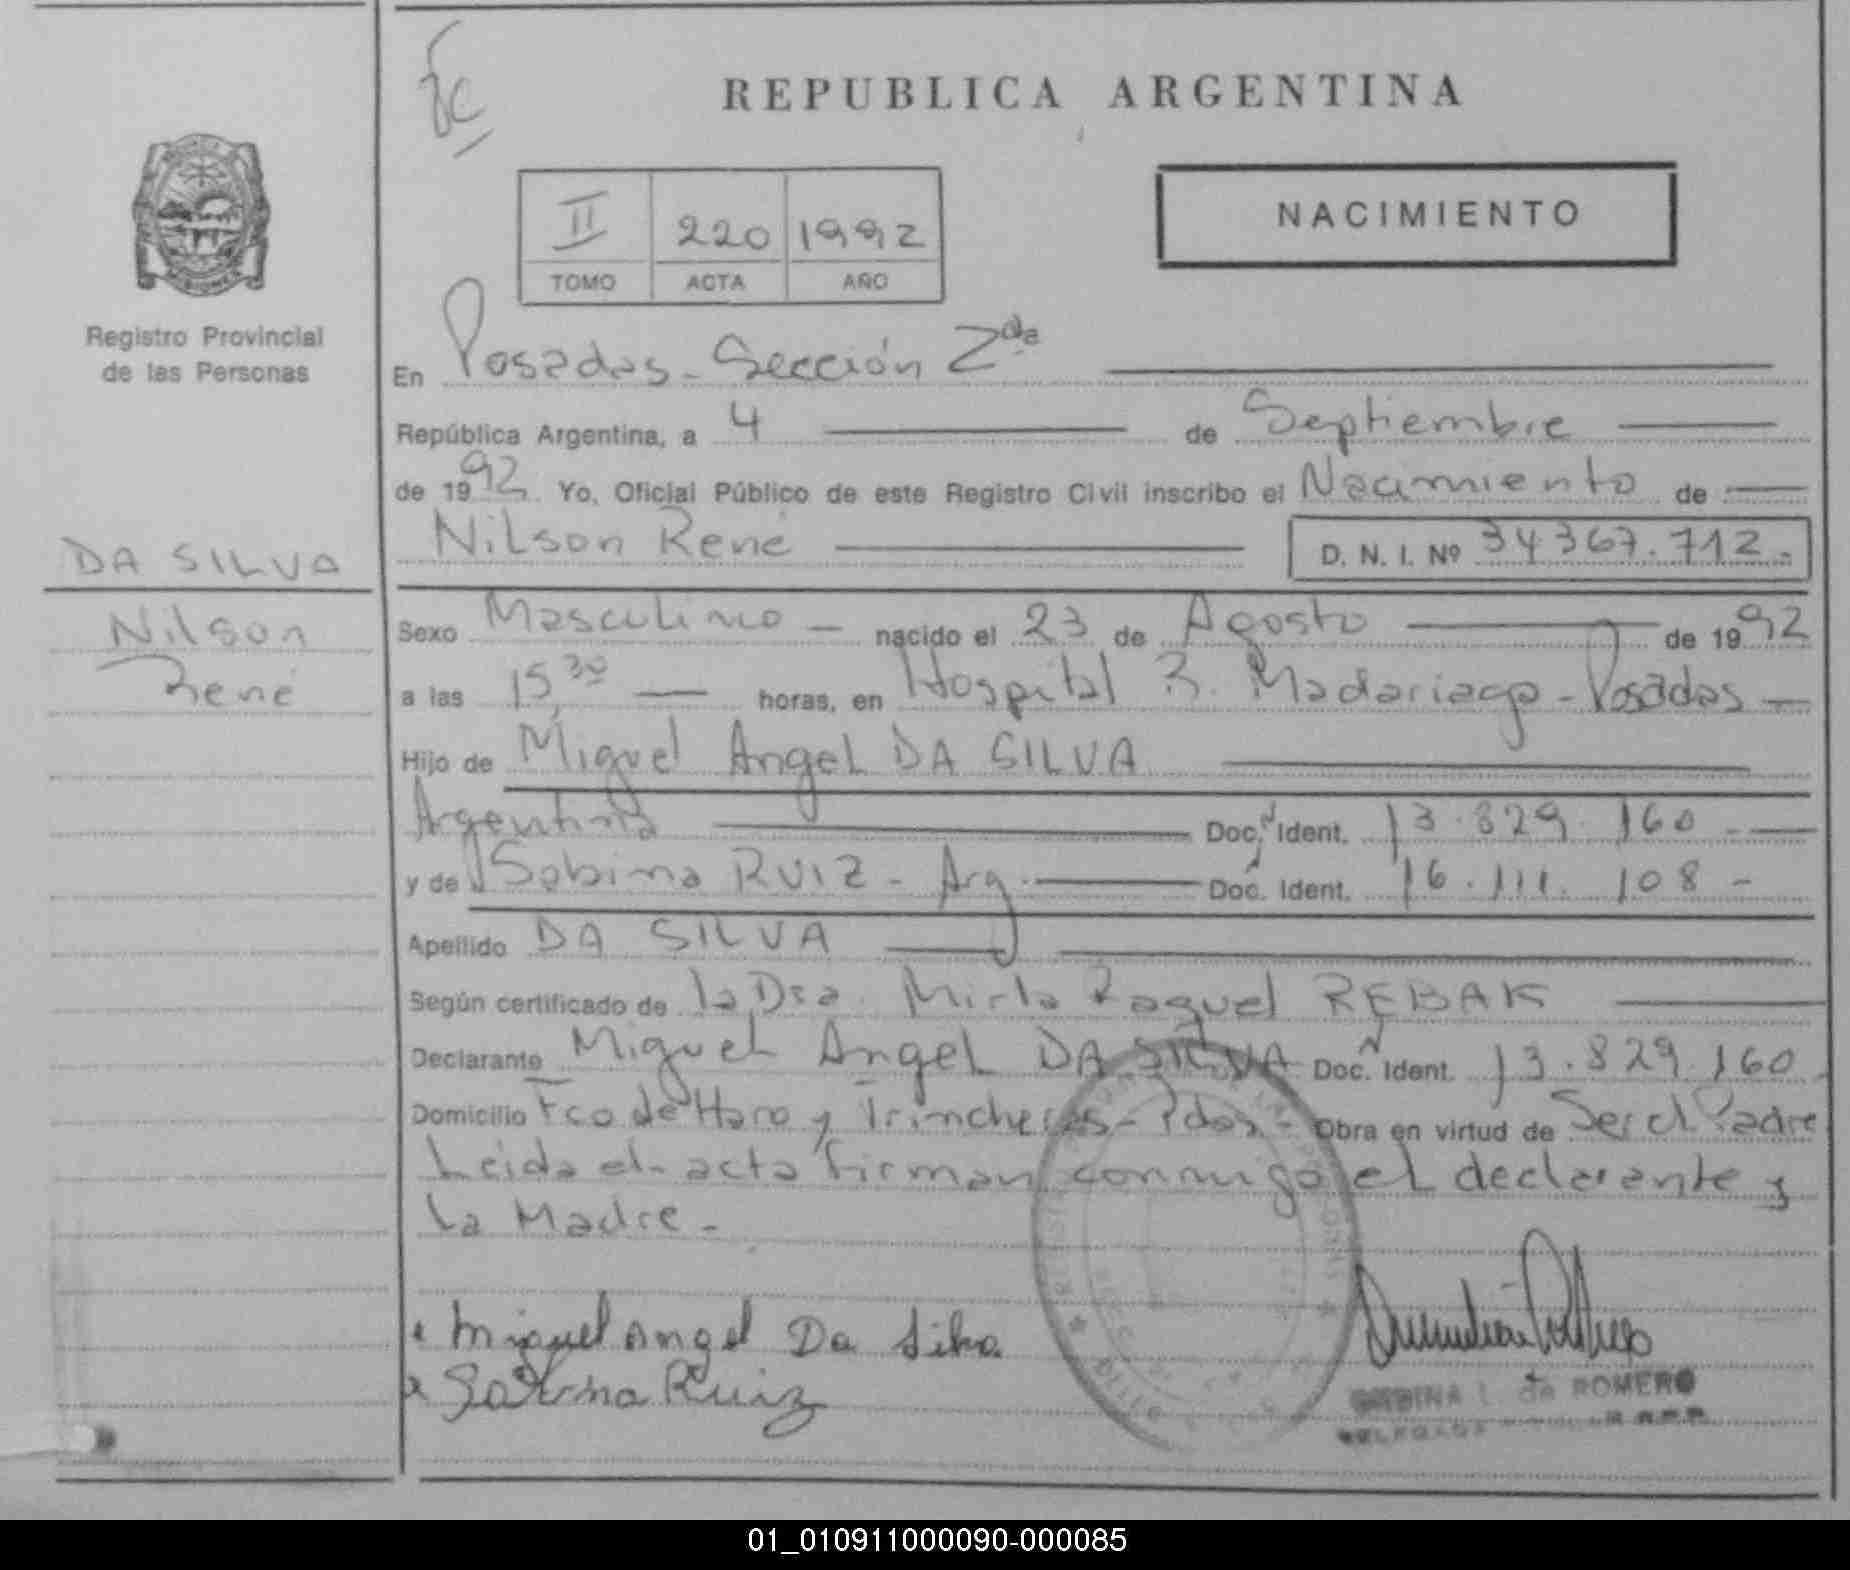 Fc
REPUBLICA ARGENTINA
II 220 1992
TOMO ACTA AÑO
NACIMIENTO
Registro Provincial
de las Personas
En Posadas - Sección 2da
República Argentina, a 4 de Septiembre
de 1992 Yo, Oficial Público de este Registro Civil inscribo el Nacimiento de
Nilson René D. N. I. Nº 34367.712.-
DA SILVA
Nilson
René
Sexo Masculino - nacido el 23 de Agosto de 1992
a las 15,30 horas, en Hospital R. Madariaga - Posadas -
Hijo de Miguel Angel DA SILVA
Argentina Doc. Ident. 13.829.160 -
y de Sabina RUIZ - Arg. Doc. Ident. 16.111.108 -
Apellido DA SILVA
Según certificado de la Dra. Mirta Raquel REBAK
Declarante Miguel Angel DA SILVA Doc. Ident. 13.829.160
Domicilio Fco de Haro y Trincheras - Pdas - Obra en virtud de Ser el Padre
Leida el acta firman conmigo el declarante y
la Madre -
Miguel Angel Da Silva
Sabina Ruiz
L. de ROMERO
01_010911000090-000085